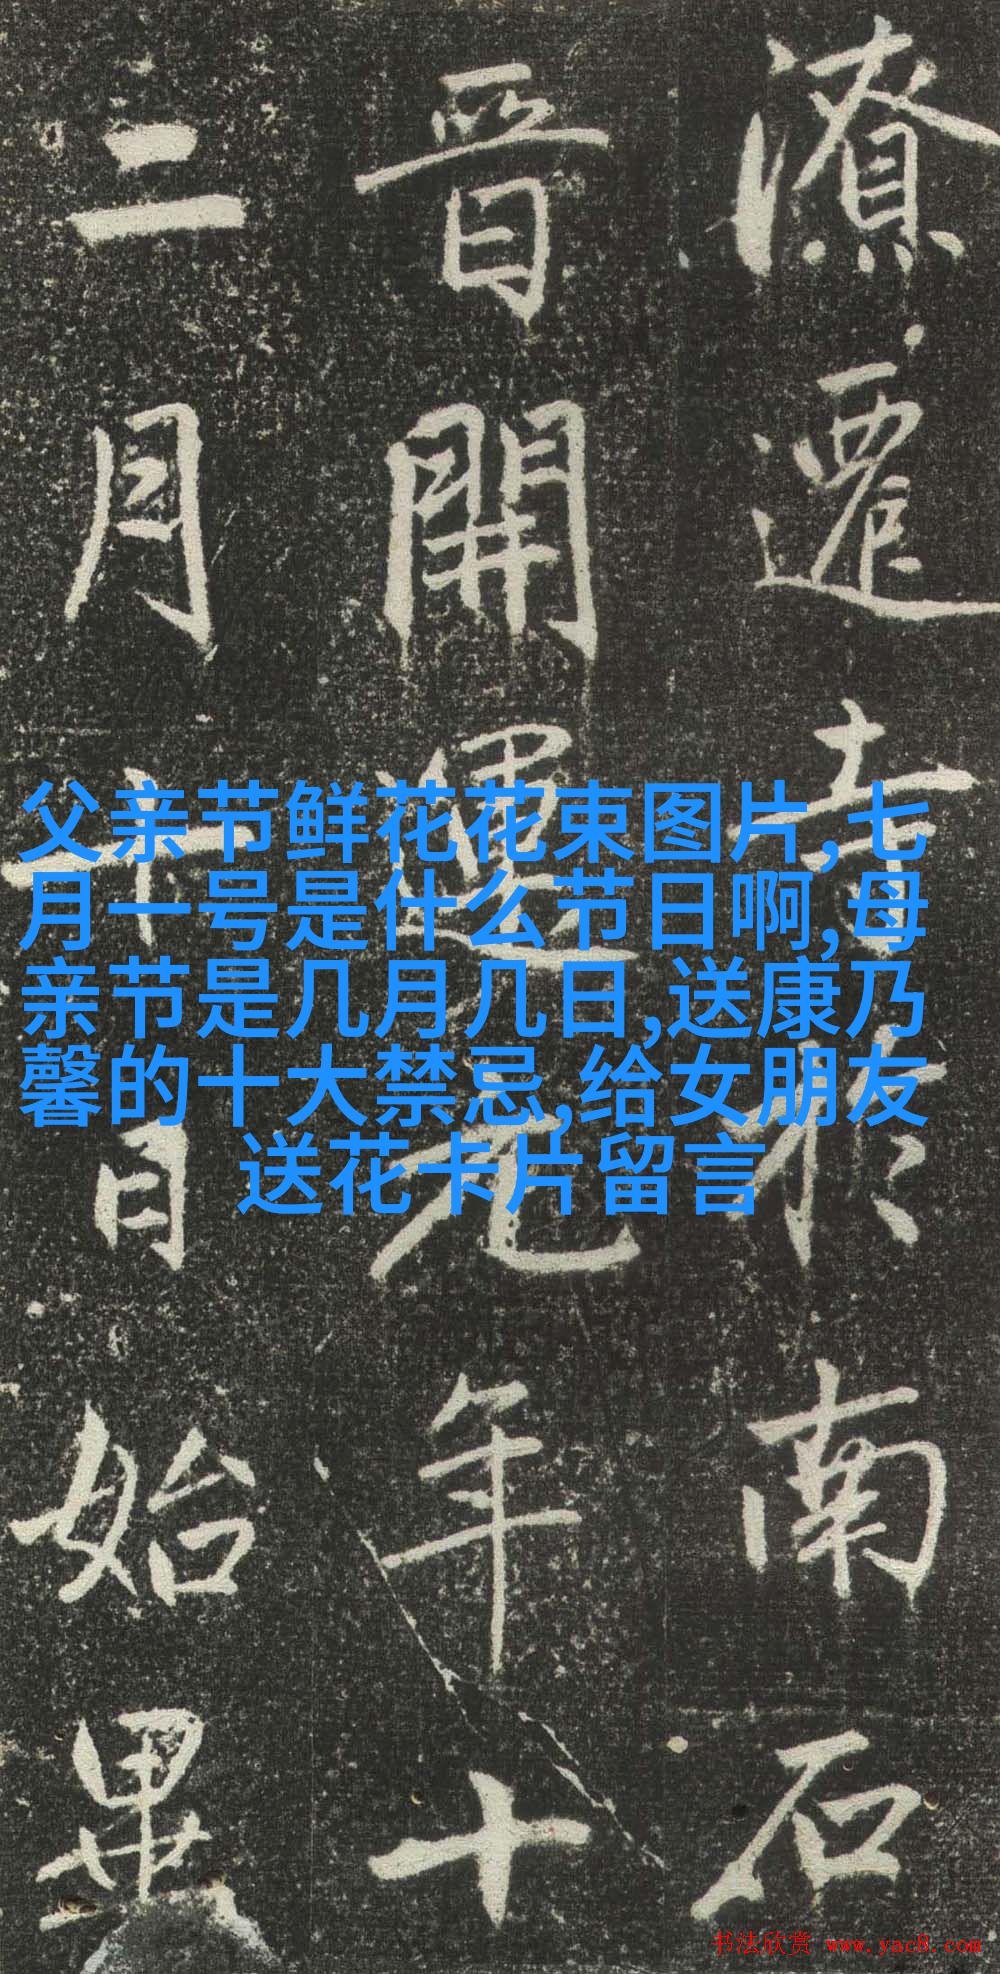 潦遷寺於南石
晉開運元年十
二月十日始畢
父亲节鲜花花束图片,七
月一号是什么节日啊,母
亲节是几月几日,送康乃
馨的十大禁忌,给女朋友
送花卡片留言
书法欣赏 www.yac8.com